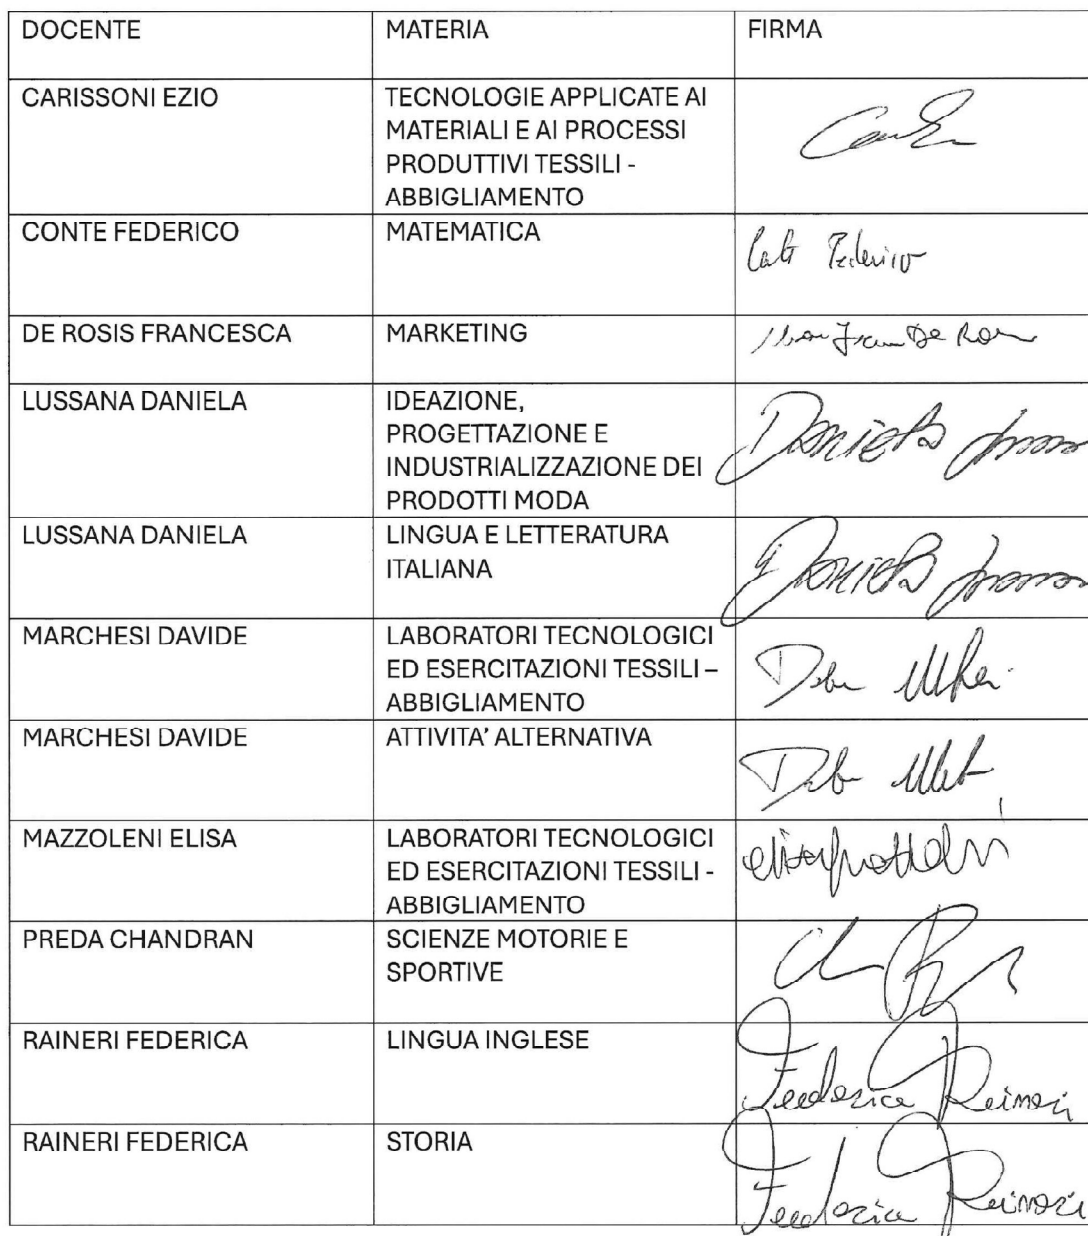 DOCENTE MATERIA FIRMA
CARISSONI EZIO TECNOLOGIE APPLICATE AI
MATERIALI E AI PROCESSI
PRODUTTIVI TESSILI -
ABBIGLIAMENTO
CONTE FEDERICO MATEMATICA Federico
DE ROSIS FRANCESCA MARKETING De
LUSSANA DANIELA IDEAZIONE, Daniela
PROGETTAZIONE E
INDUSTRIALIZZAZIONE DEI
PRODOTTI MODA
LUSSANA DANIELA LINGUA E LETTERATURA Daniela
ITALIANA
MARCHESI DAVIDE LABORATORI TECNOLOGICI
ED ESERCITAZIONI TESSILI –
ABBIGLIAMENTO
MARCHESI DAVIDE ATTIVITA’ ALTERNATIVA
MAZZOLENI ELISA LABORATORI TECNOLOGICI
ED ESERCITAZIONI TESSILI -
ABBIGLIAMENTO
PREDA CHANDRAN SCIENZE MOTORIE E
SPORTIVE
RAINERI FEDERICA LINGUA INGLESE Federica Raineri
RAINERI FEDERICA STORIA Federica Raineri